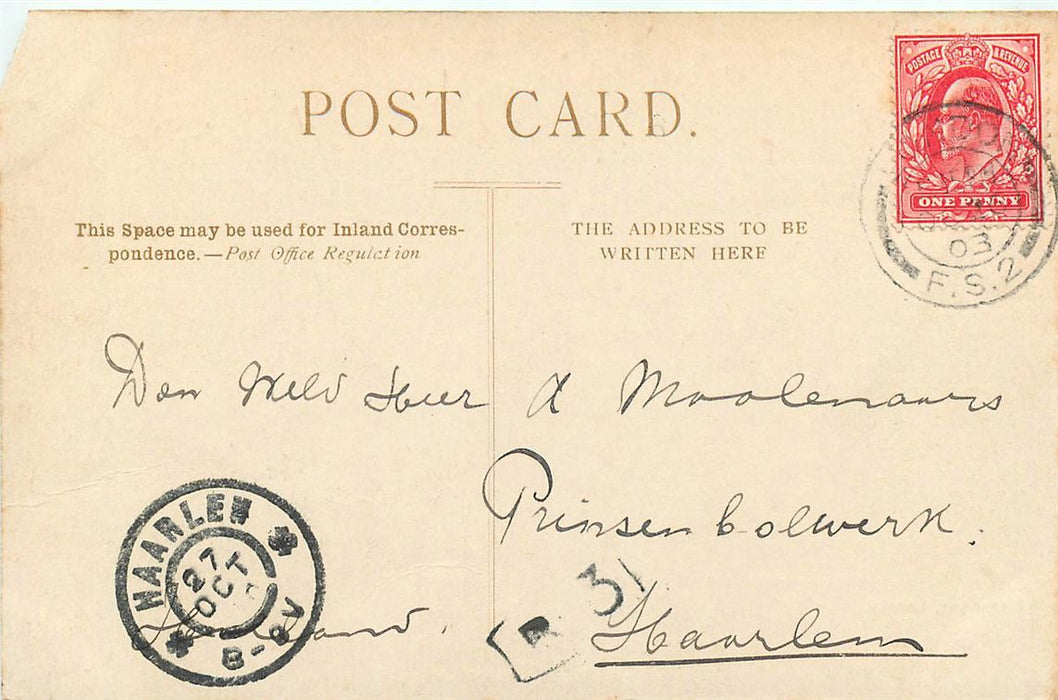 POST CARD.
POSTAGE & REVENUE
ONE PENNY
03
F.S.2
This Space may be used for Inland Corres-
pondence.—Post Office Regulation
THE ADDRESS TO BE
WRITTEN HERE
Den Weld Heer A Moolenaars
Prinsenbolwerk.
Haarlem
Holland.
HAARLEM
27
OCT
8-9V
31